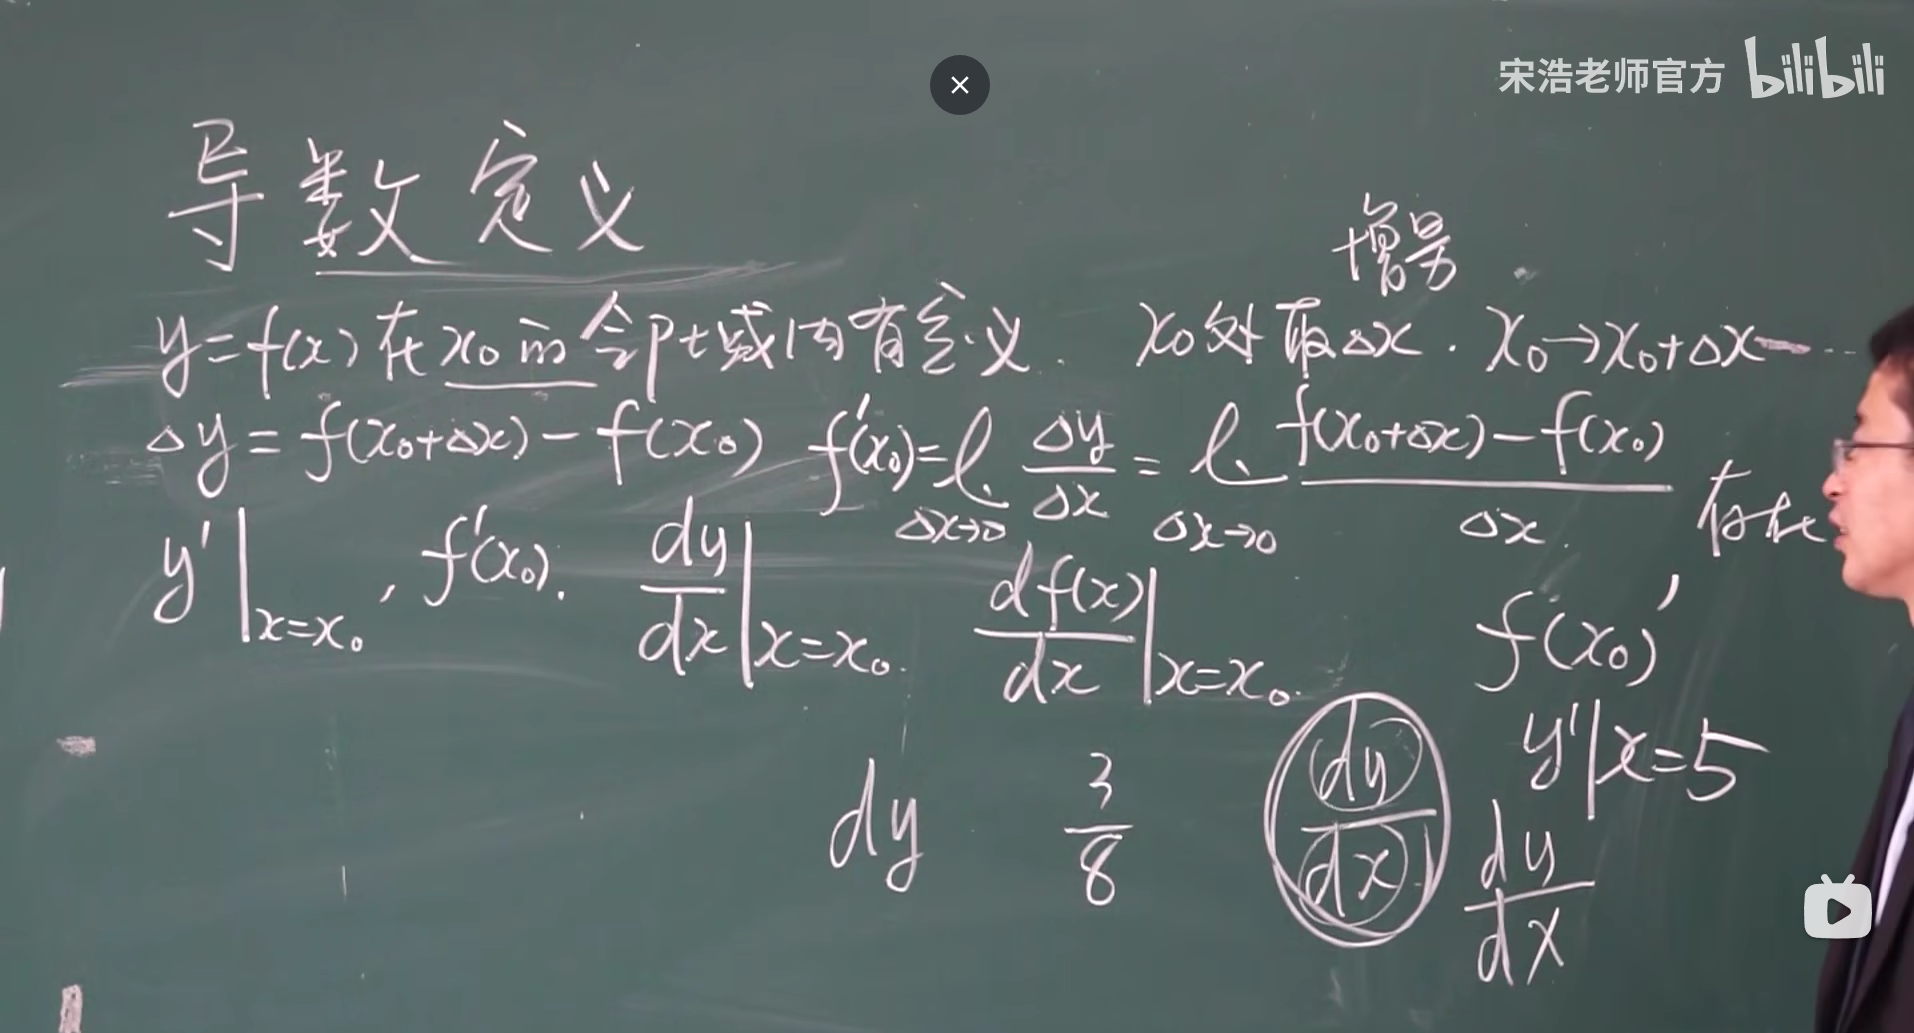 宋浩老师官方 bilibili
导数定义
增量
y=f(x)在x₀的邻域内有定义. x₀处取Δx. x₀→x₀+Δx
Δy=f(x₀+Δx)-f(x₀) f'(x₀)=l. Δx→0 Δy/Δx = l. Δx→0 (f(x₀+Δx)-f(x₀))/Δx 存在
y'|x=x₀, f'(x₀). dy/dx|x=x₀. df(x)/dx|x=x₀. f(x₀)'
y'|x=5
dy 3/8 dy/dx dy/dx